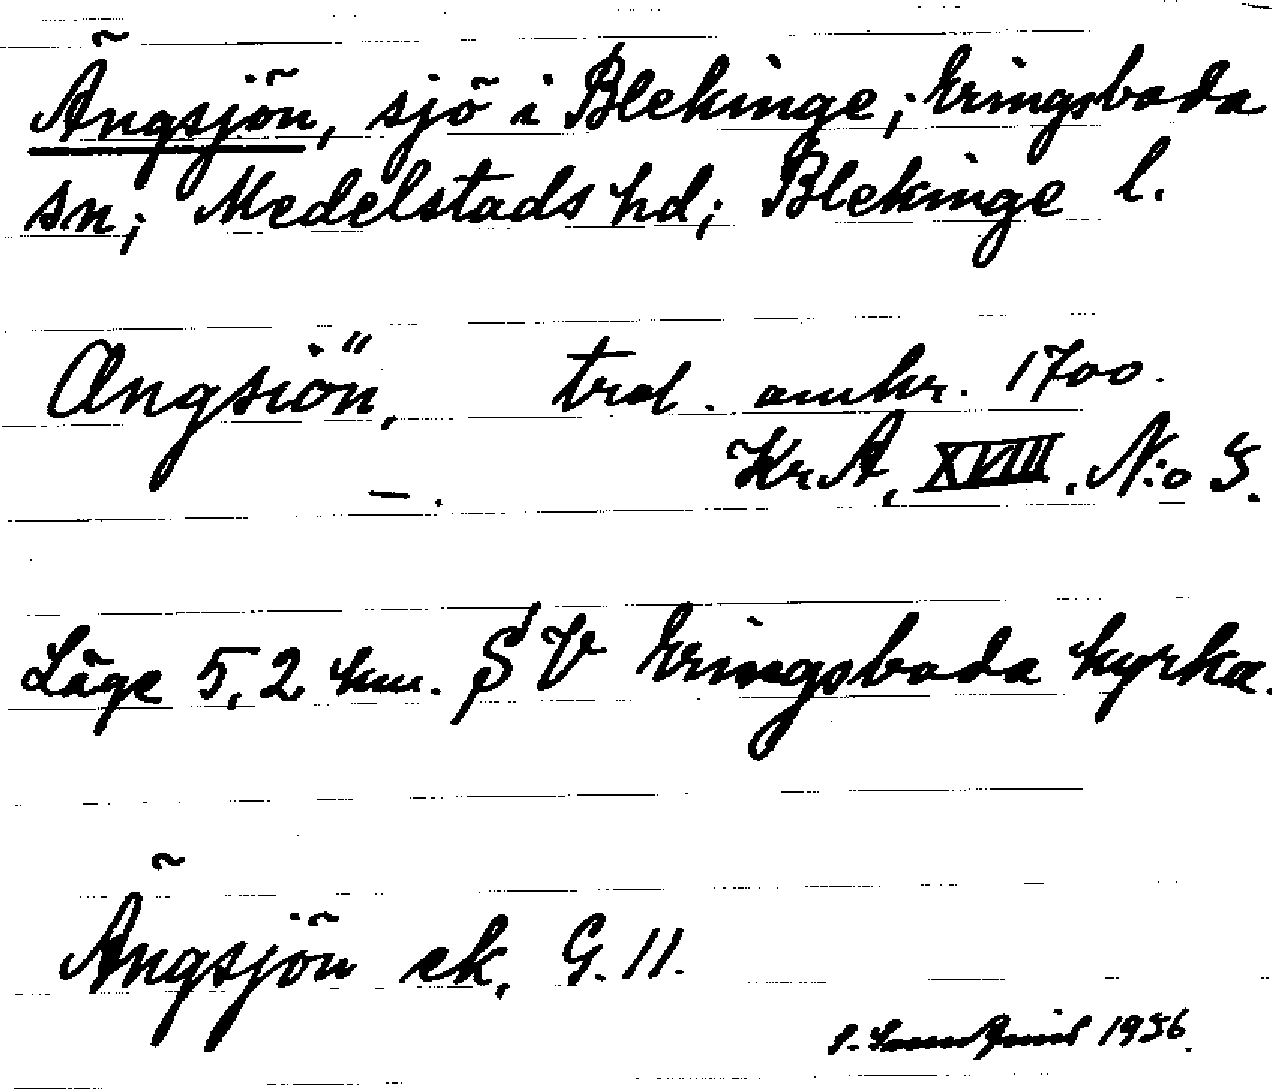 Ängsjön, sjö i Blekinge; Eringsboda
sn; Medelstads hd; Blekinge l.
Ængsiön, trol. omkr. 1700.
Kr.A, XVIII. N:o 5.
—.
Läge 5,2 km. SV Eringsboda kyrka.
Ängsjön ek, G. 11.
1956.